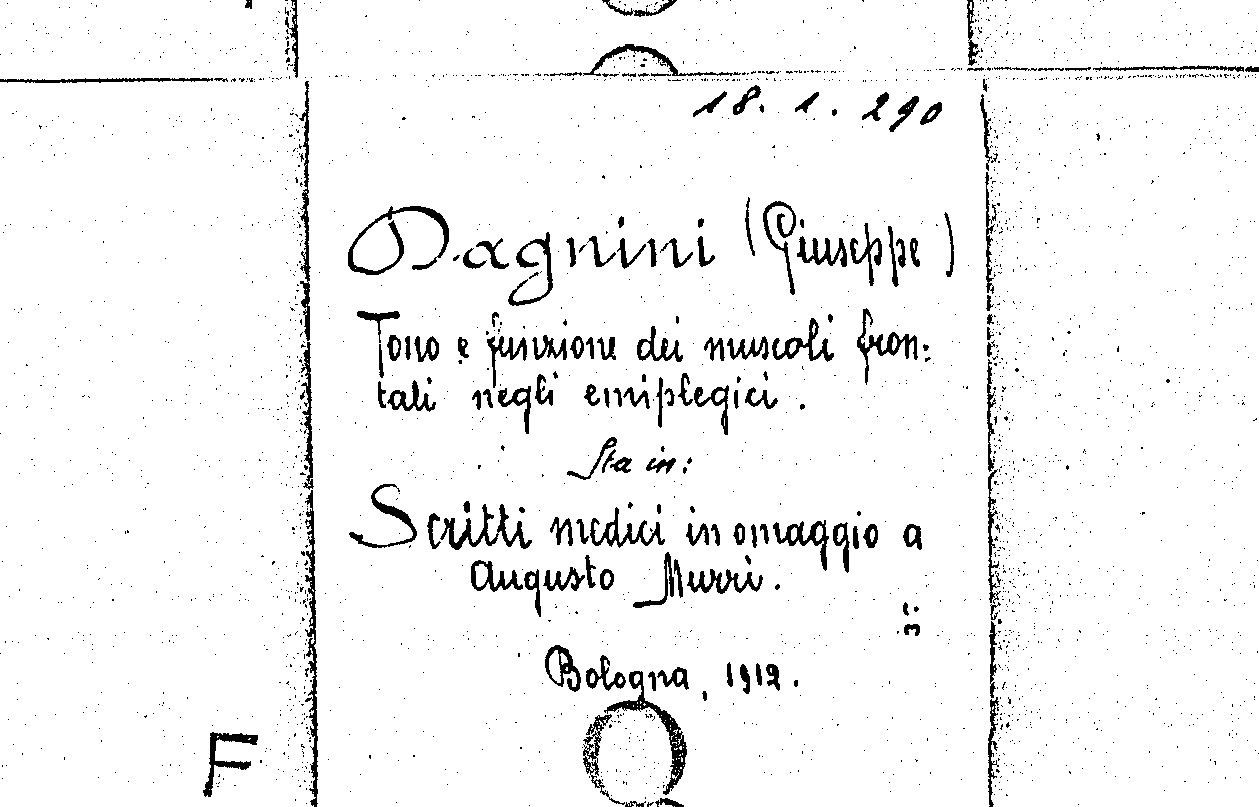 18. 1. 290
Dagnini (Giuseppe)
Tono e funzione dei muscoli fron-
tali negli emiplegici.
Sta in:
Scritti medici in omaggio a
Augusto Murri.
Bologna, 1912.
F